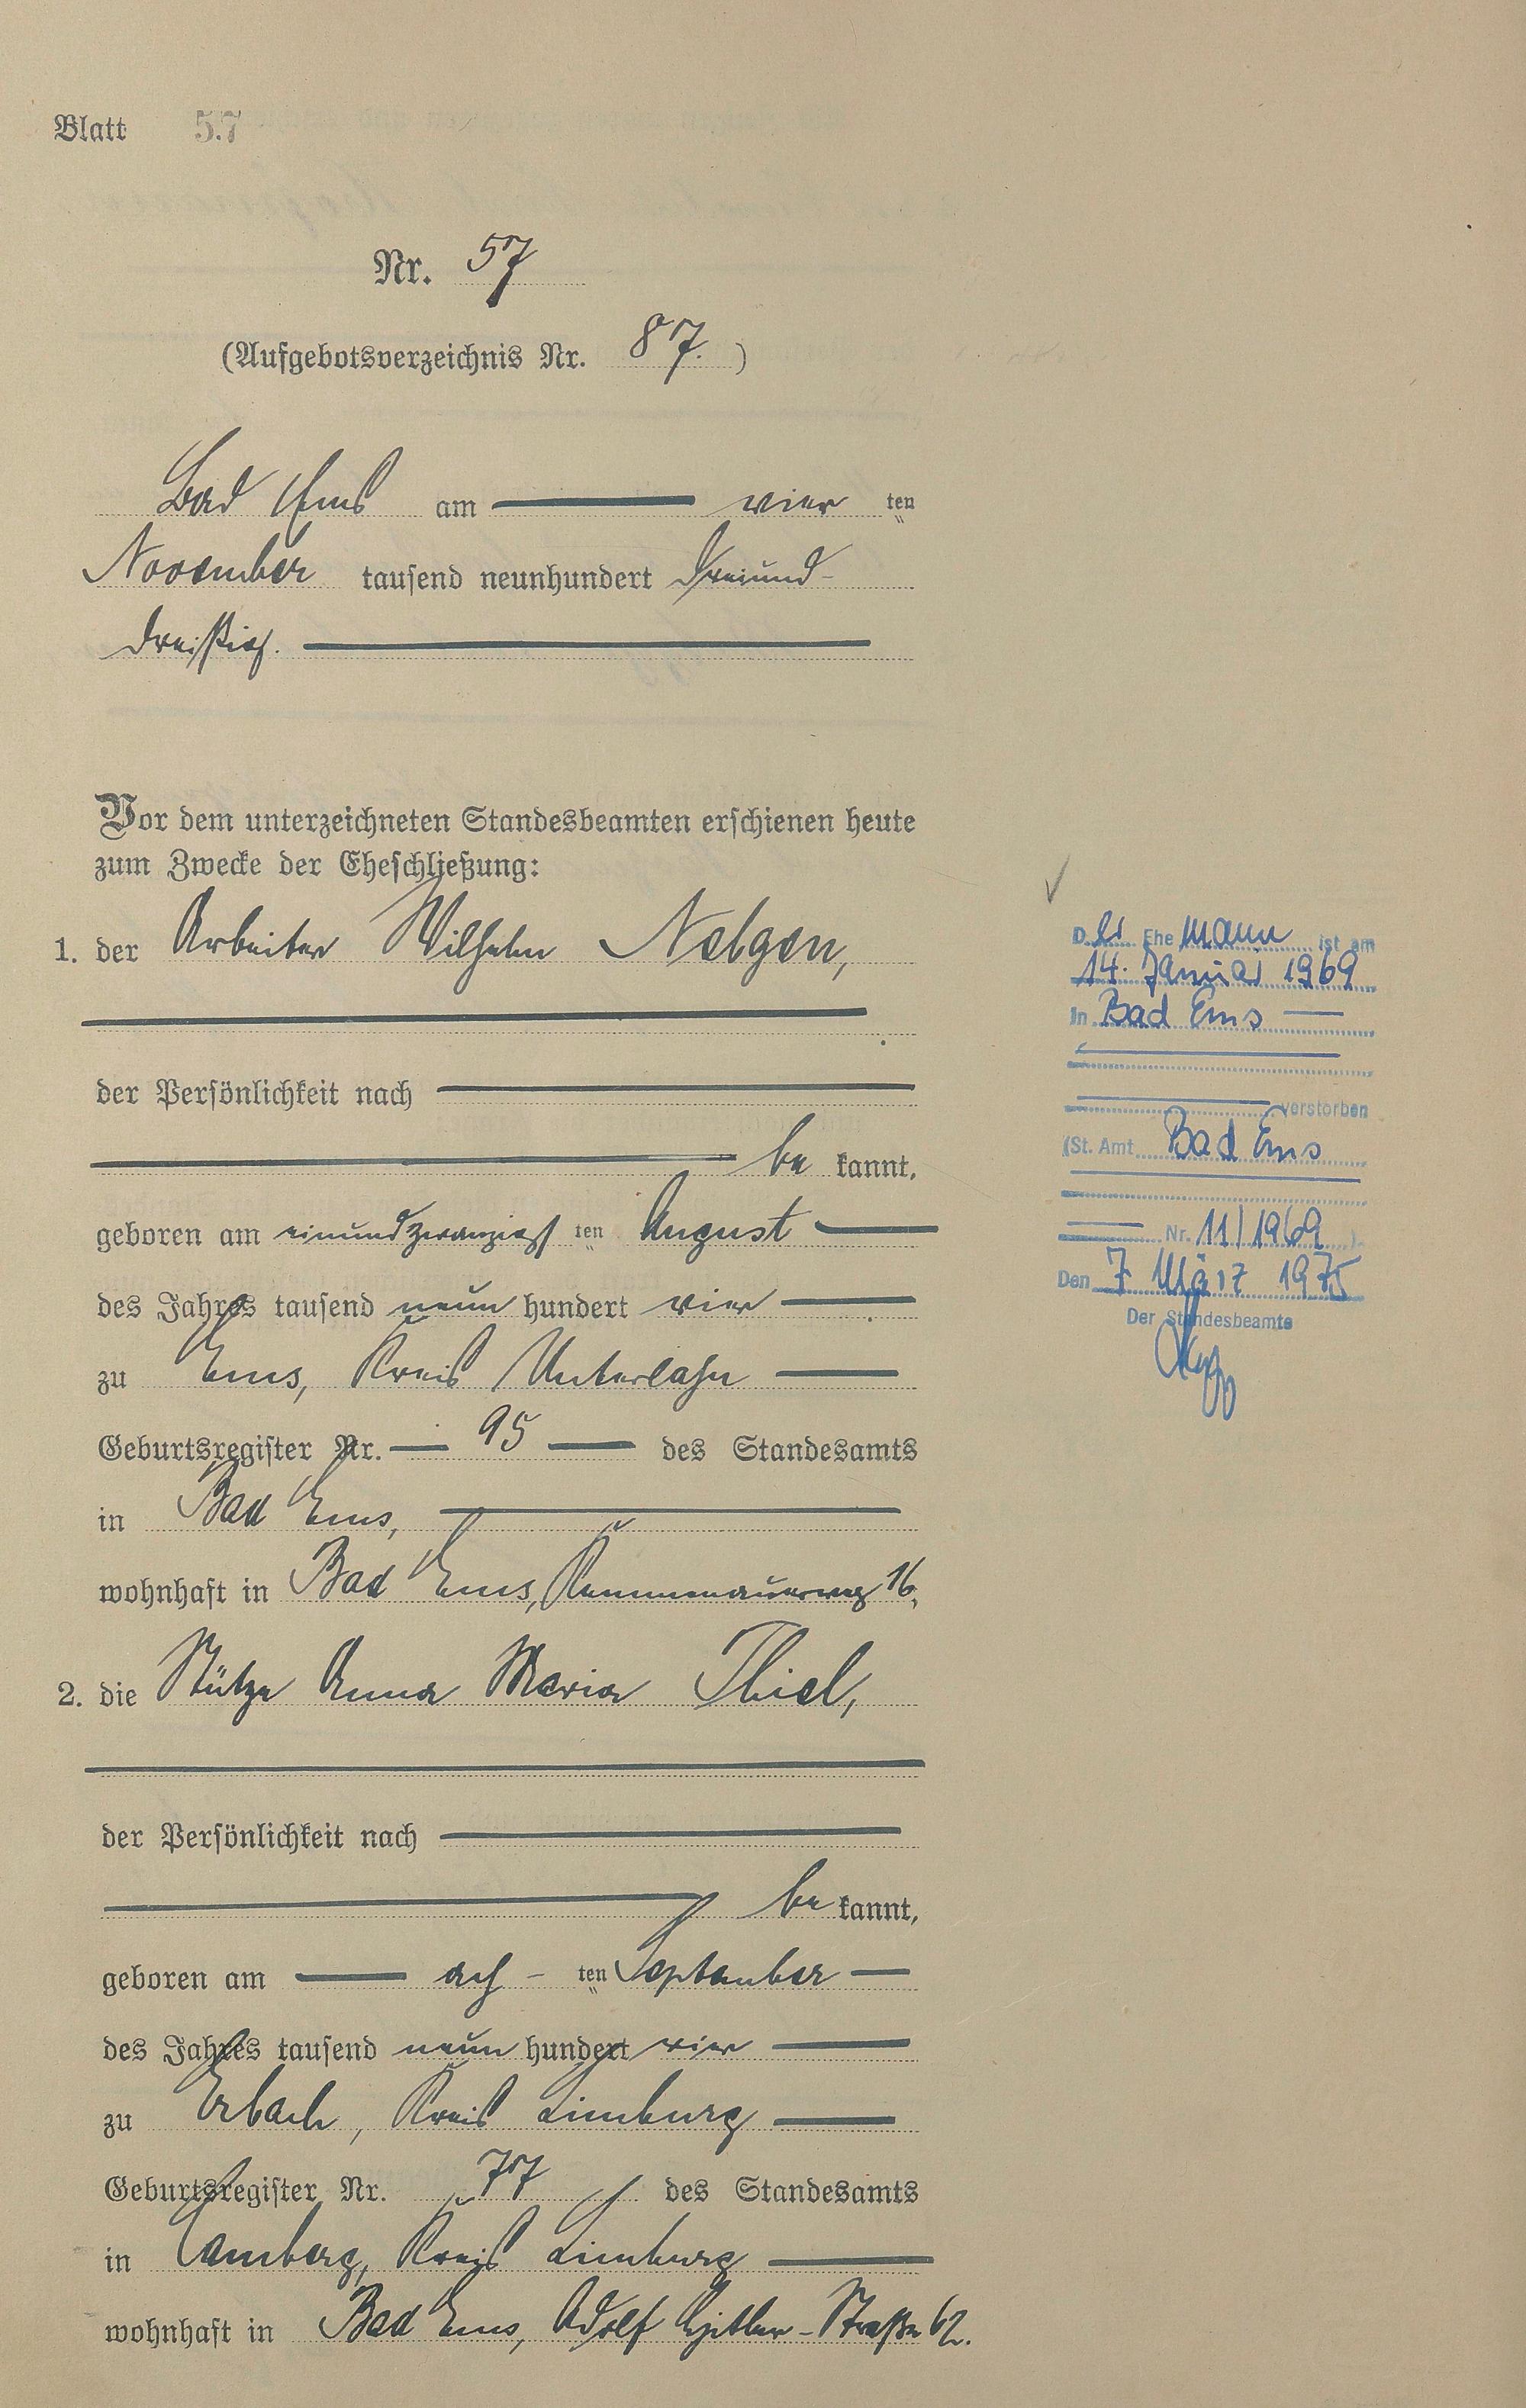 Blatt 57
Nr. 57
(Aufgebotsverzeichnis Nr. 87.)
Bad Ems am vier ten
November tausend neunhundert dreiund-
dreißig.
Vor dem unterzeichneten Standesbeamten erschienen heute
zum Zwecke der Eheschließung:
1. der Arbeiter Wilhelm Nelgen,
der Persönlichkeit nach
be kannt,
geboren am einundzwanzigs ten August
des Jahres tausend neun hundert vier
zu Ems, Kreis Unterlahn
Geburtsregister Nr. 95 des Standesamts
in Bad Ems,
wohnhaft in Bad Ems, Kemmenauerweg 16,
2. die Stütze Anna Maria Thiel,
der Persönlichkeit nach
be kannt,
geboren am ach - ten September
des Jahres tausend neun hundert vier
zu Erbach, Kreis Limburg
Geburtsregister Nr. 77 des Standesamts
in Camberg, Kreis Limburg
wohnhaft in Bad Ems, Adolf Hitler-Straße 62.
D er Ehe mann ist am
14. Januar 1969
In Bad Ems
verstorben
(St. Amt Bad Ems
Nr. 11/1969 ).
Den 7. März 1975
Der Standesbeamte